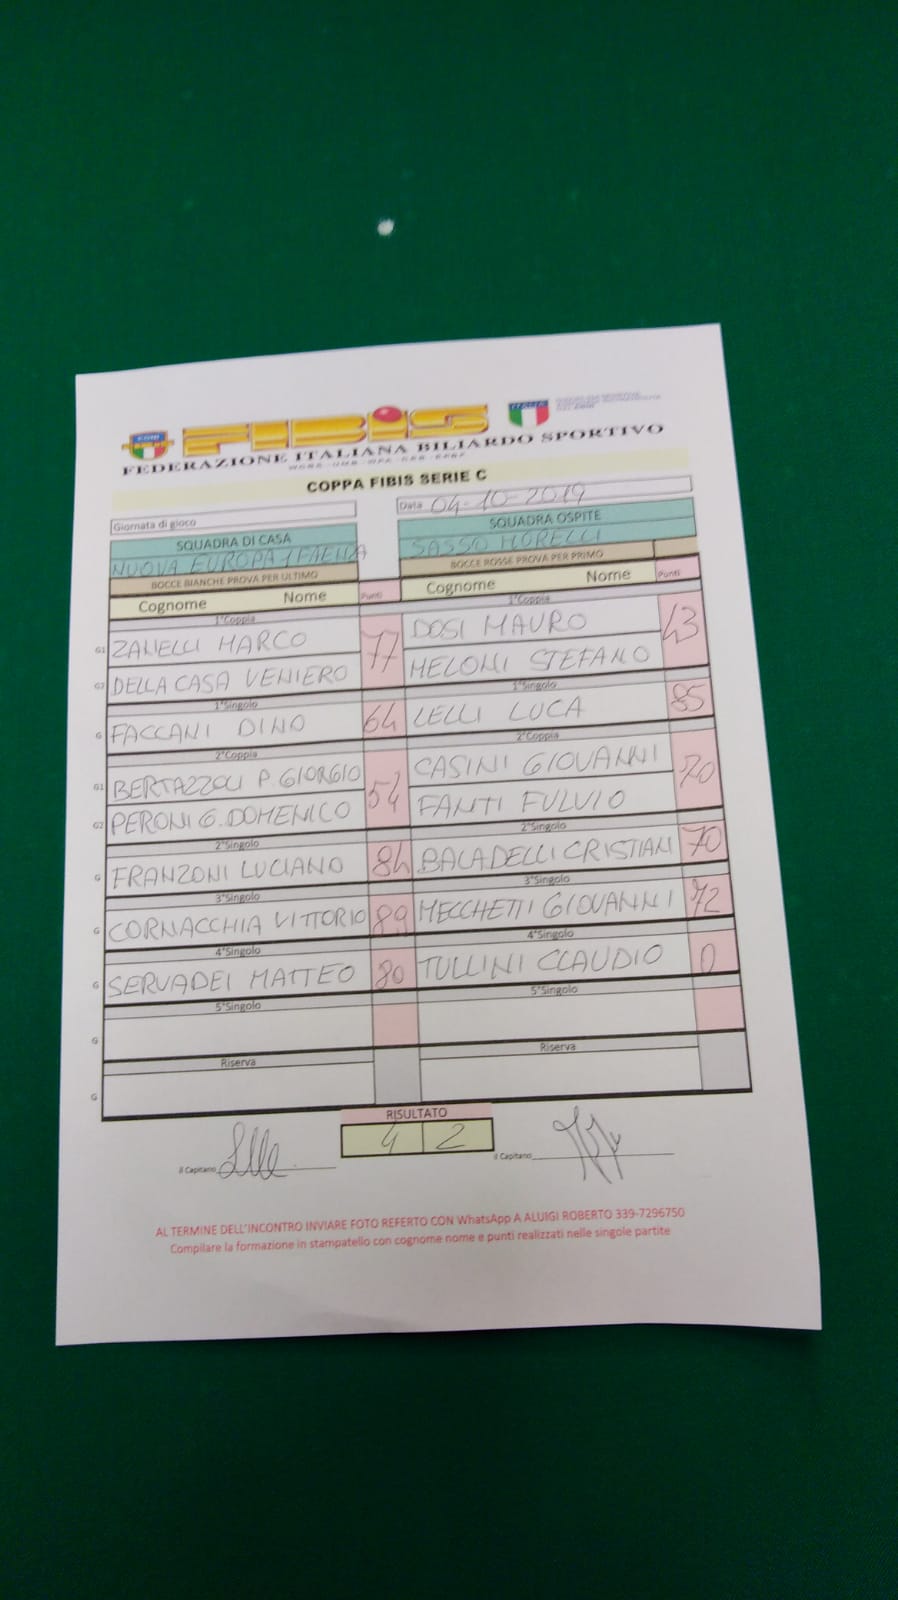 FIBIS
FEDERAZIONE ITALIANA BILIARDO SPORTIVO
COPPA FIBIS SERIE C
Giornata di gioco
Data 04-10-2019
SQUADRA DI CASA SQUADRA OSPITE
NUOVA EUROPA SASSO MORELLI
BOCCE BIANCHE PROVA PER ULTIMO BOCCE ROSSE PROVA PER PRIMO
Cognome Nome Punti Cognome Nome Punti
1°Coppia 1°Coppia
G1 ZANELLI MARCO 77 DOSI MAURO 43
G2 DELLA CASA VENIERO MELONI STEFANO
1°Singolo 1°Singolo
G FACCANI DINO 64 LELLI LUCA 85
2°Coppia 2°Coppia
G1 BERTAZZOLI P. GIORGIO 54 CASINI GIOVANNI 70
G2 PERONI G. DOMENICO FANTI FULVIO
2°Singolo 2°Singolo
G FRANZONI LUCIANO 84 BALADELLI CRISTIAN 70
3°Singolo 3°Singolo
G CORNACCHIA VITTORIO 89 MECCHETTI GIOVANNI 72
4°Singolo 4°Singolo
G SERVADEI MATTEO 80 TULLINI CLAUDIO 0
5°Singolo 5°Singolo
G
Riserva Riserva
G
RISULTATO
4 2
Il Capitano Il Capitano
AL TERMINE DELL'INCONTRO INVIARE FOTO REFERTO CON WhatsApp A ALUIGI ROBERTO 339-7296750
Compilare la formazione in stampatello con cognome nome e punti realizzati nelle singole partite